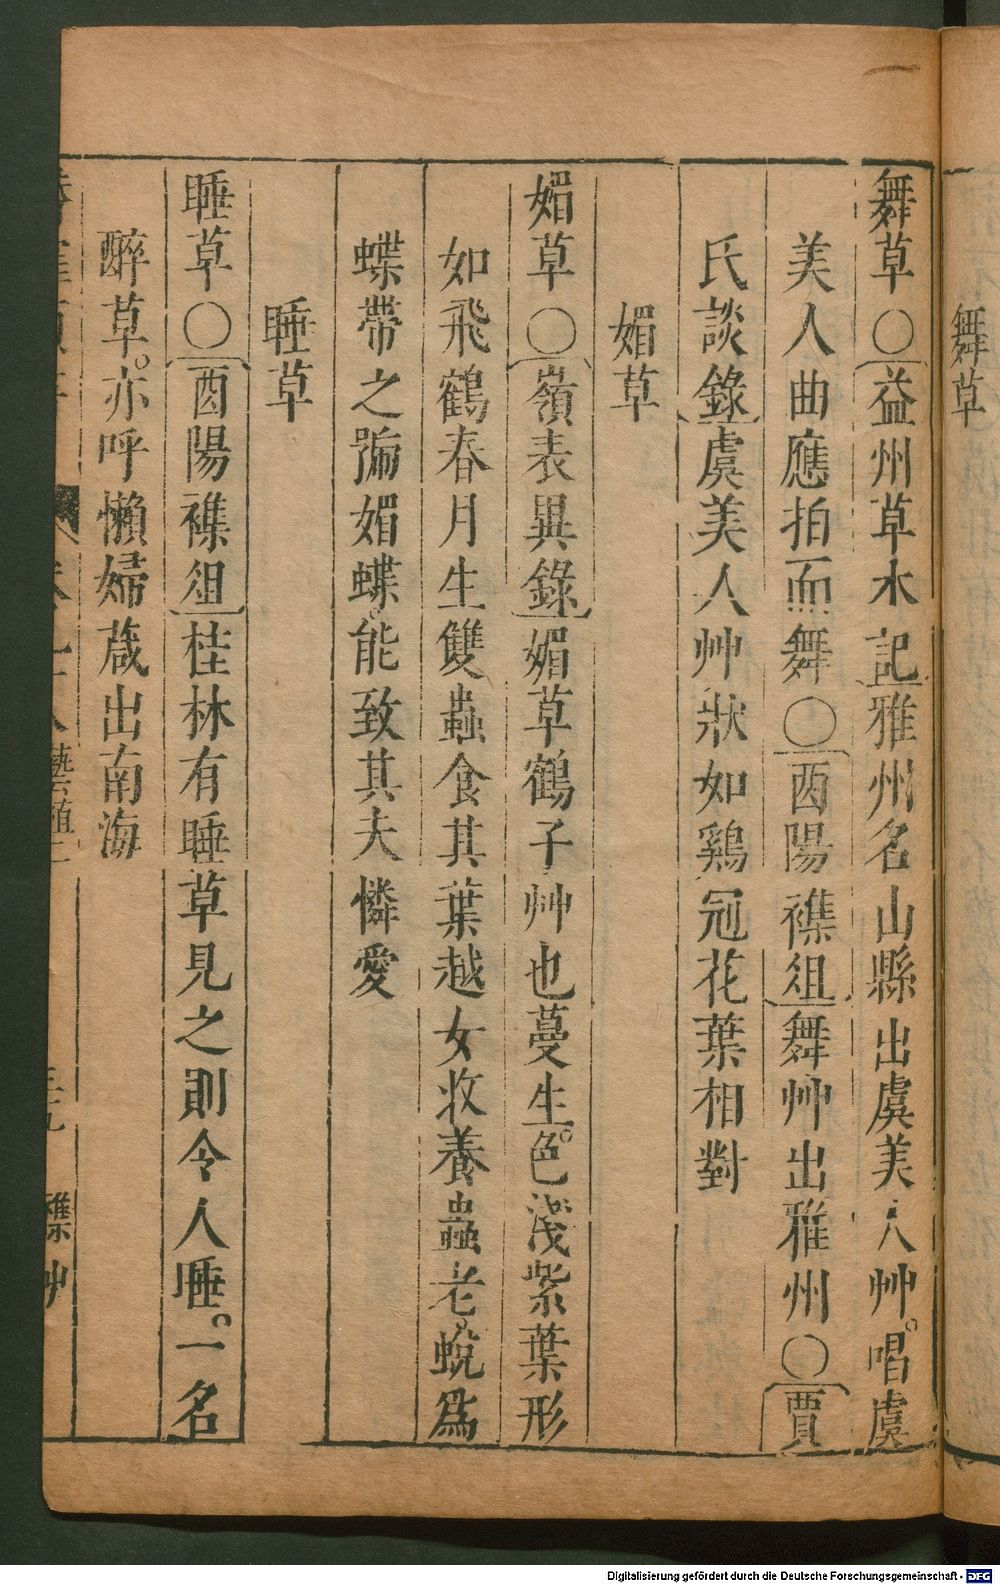 舞草
舞草〇益州草木記雅州名山縣出虞美人艸。唱虞
美人曲應拍而舞〇酉陽襍俎舞艸出雅州〇賈
氏談錄虞美人艸狀如鷄冠花葉相對
媚草
媚草〇嶺表異錄媚草鶴子艸也蔓生。色淺紫葉形
如飛鶴春月生雙蟲食其葉越女收養蟲老蛻爲
蝶帶之號媚蝶能致其夫憐愛
睡草
睡草〇酉陽襍俎桂林有睡草見之則令人睡。一名
醉草。亦呼懶婦葴出南海
藝植二
襍艸
Digitalisierung gefördert durch die Deutsche Forschungsgemeinschaft - DFG